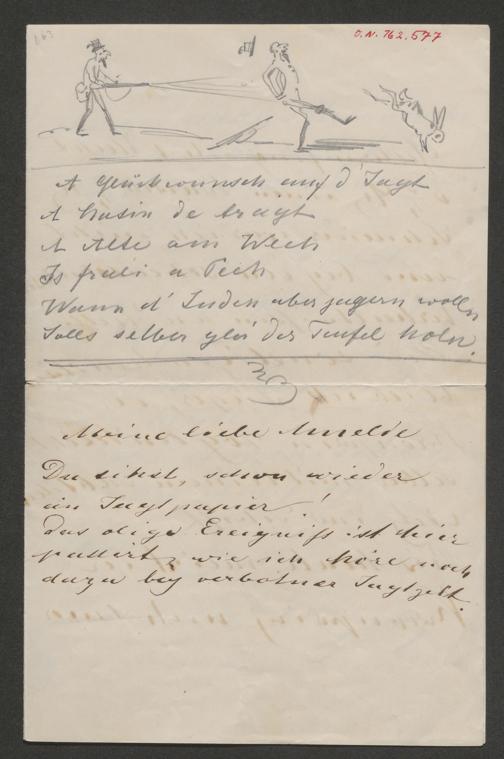 O.N. 762.577
A Glückwunsch auf d' Jagt
A Hasin de tragt
A Alte am Wech
Is frali a Pech
Wann d' Juden aber jagern wolln
Solls selber glei der Teufel holn.
Meine liebe
Du siehst, schon wieder
ein Jagtpapier!
das obige Ereigniß ist hier
passirt, wie ich höre noch
dazu bey verbotner Jagtzeit.